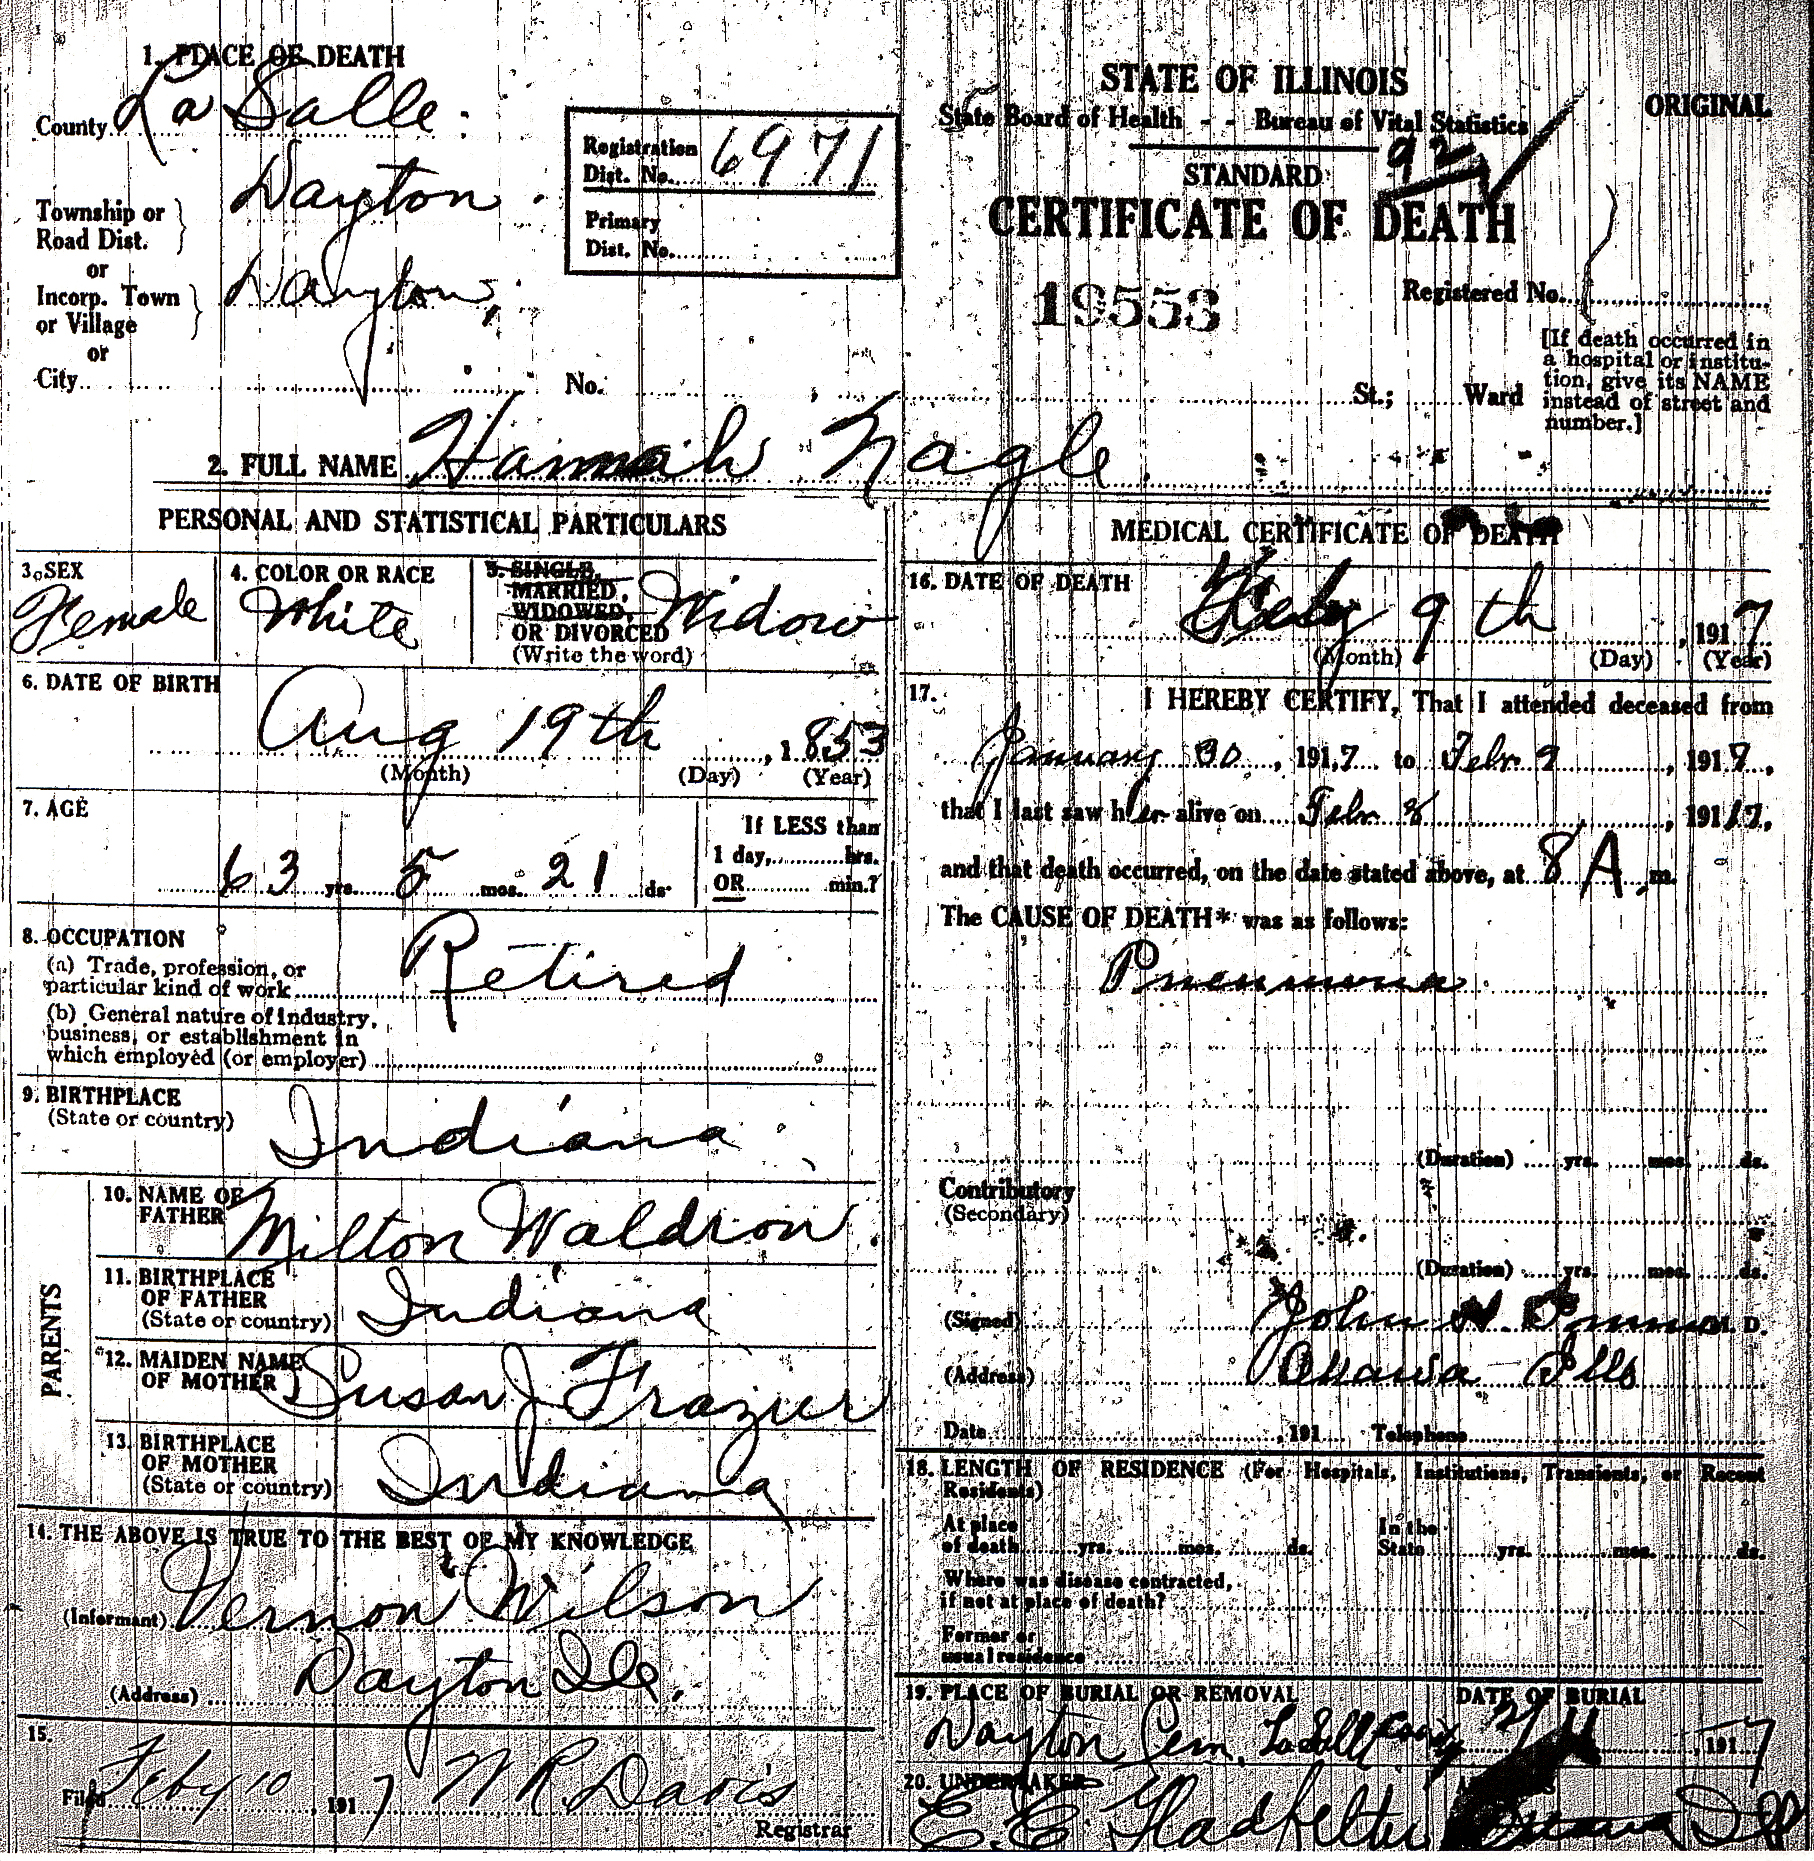 1. PLACE OF DEATH
County La Salle
Township or Road Dist. Dayton
or
Incorp. Town or Village Dayton
or
City
No. St.; Ward
Registration Dist. No. 6971
Primary Dist. No.
STATE OF ILLINOIS
State Board of Health - - Bureau of Vital Statistics
ORIGINAL
92
STANDARD
CERTIFICATE OF DEATH
19553
Registered No.
[If death occurred in
a hospital or institu-
tion, give its NAME
instead of street and
number.]
2. FULL NAME Hannah Nagle
PERSONAL AND STATISTICAL PARTICULARS
3. SEX
Female
4. COLOR OR RACE
White
5. SINGLE,
MARRIED,
WIDOWED,
OR DIVORCED
(Write the word)
Widow
6. DATE OF BIRTH
Aug 19th, 1853
(Month) (Day) (Year)
7. AGE
63 yrs. 5 mos. 21 ds.
If LESS than
1 day, hrs.
OR min.?
8. OCCUPATION
(a) Trade, profession, or
particular kind of work Retired
(b) General nature of industry,
business, or establishment in
which employed (or employer)
9. BIRTHPLACE
(State or country)
Indiana
PARENTS
10. NAME OF
FATHER Milton Waldron
11. BIRTHPLACE
OF FATHER
(State or country) Indiana
12. MAIDEN NAME
OF MOTHER Susan J Frazier
13. BIRTHPLACE
OF MOTHER
(State or country) Indiana
14. THE ABOVE IS TRUE TO THE BEST OF MY KNOWLEDGE
(Informant) Vernon Wilson
(Address) Dayton Ill.
15.
Filed Feby 10, 1917 W R Davis
Registrar
MEDICAL CERTIFICATE OF DEATH
16. DATE OF DEATH
Feby 9th, 1917
(Month) (Day) (Year)
17. I HEREBY CERTIFY, That I attended deceased from
January 30, 1917 to Febr 9, 1917,
that I last saw her alive on Febr 8, 1917,
and that death occurred, on the date stated above, at 8 A. m.
The CAUSE OF DEATH* was as follows:
Pneumonia
(Duration) yrs. mos. ds.
Contributory
(Secondary)
(Duration) yrs. mos. ds.
(Signed) John M. D.
(Address) Ottawa Ills
Date , 191 Telephone
18. LENGTH OF RESIDENCE (For Hospitals, Institutions, Transients, or Recent
Residents)
At place
of death yrs. mos. ds.
In the
State yrs. mos. ds.
Where was disease contracted,
if not at place of death?
Former or
usual residence
19. PLACE OF BURIAL OR REMOVAL
Dayton Cem,
DATE OF BURIAL
, 1917
20. UNDERTAKER
E. E. Gladfelter
Ottawa Ill